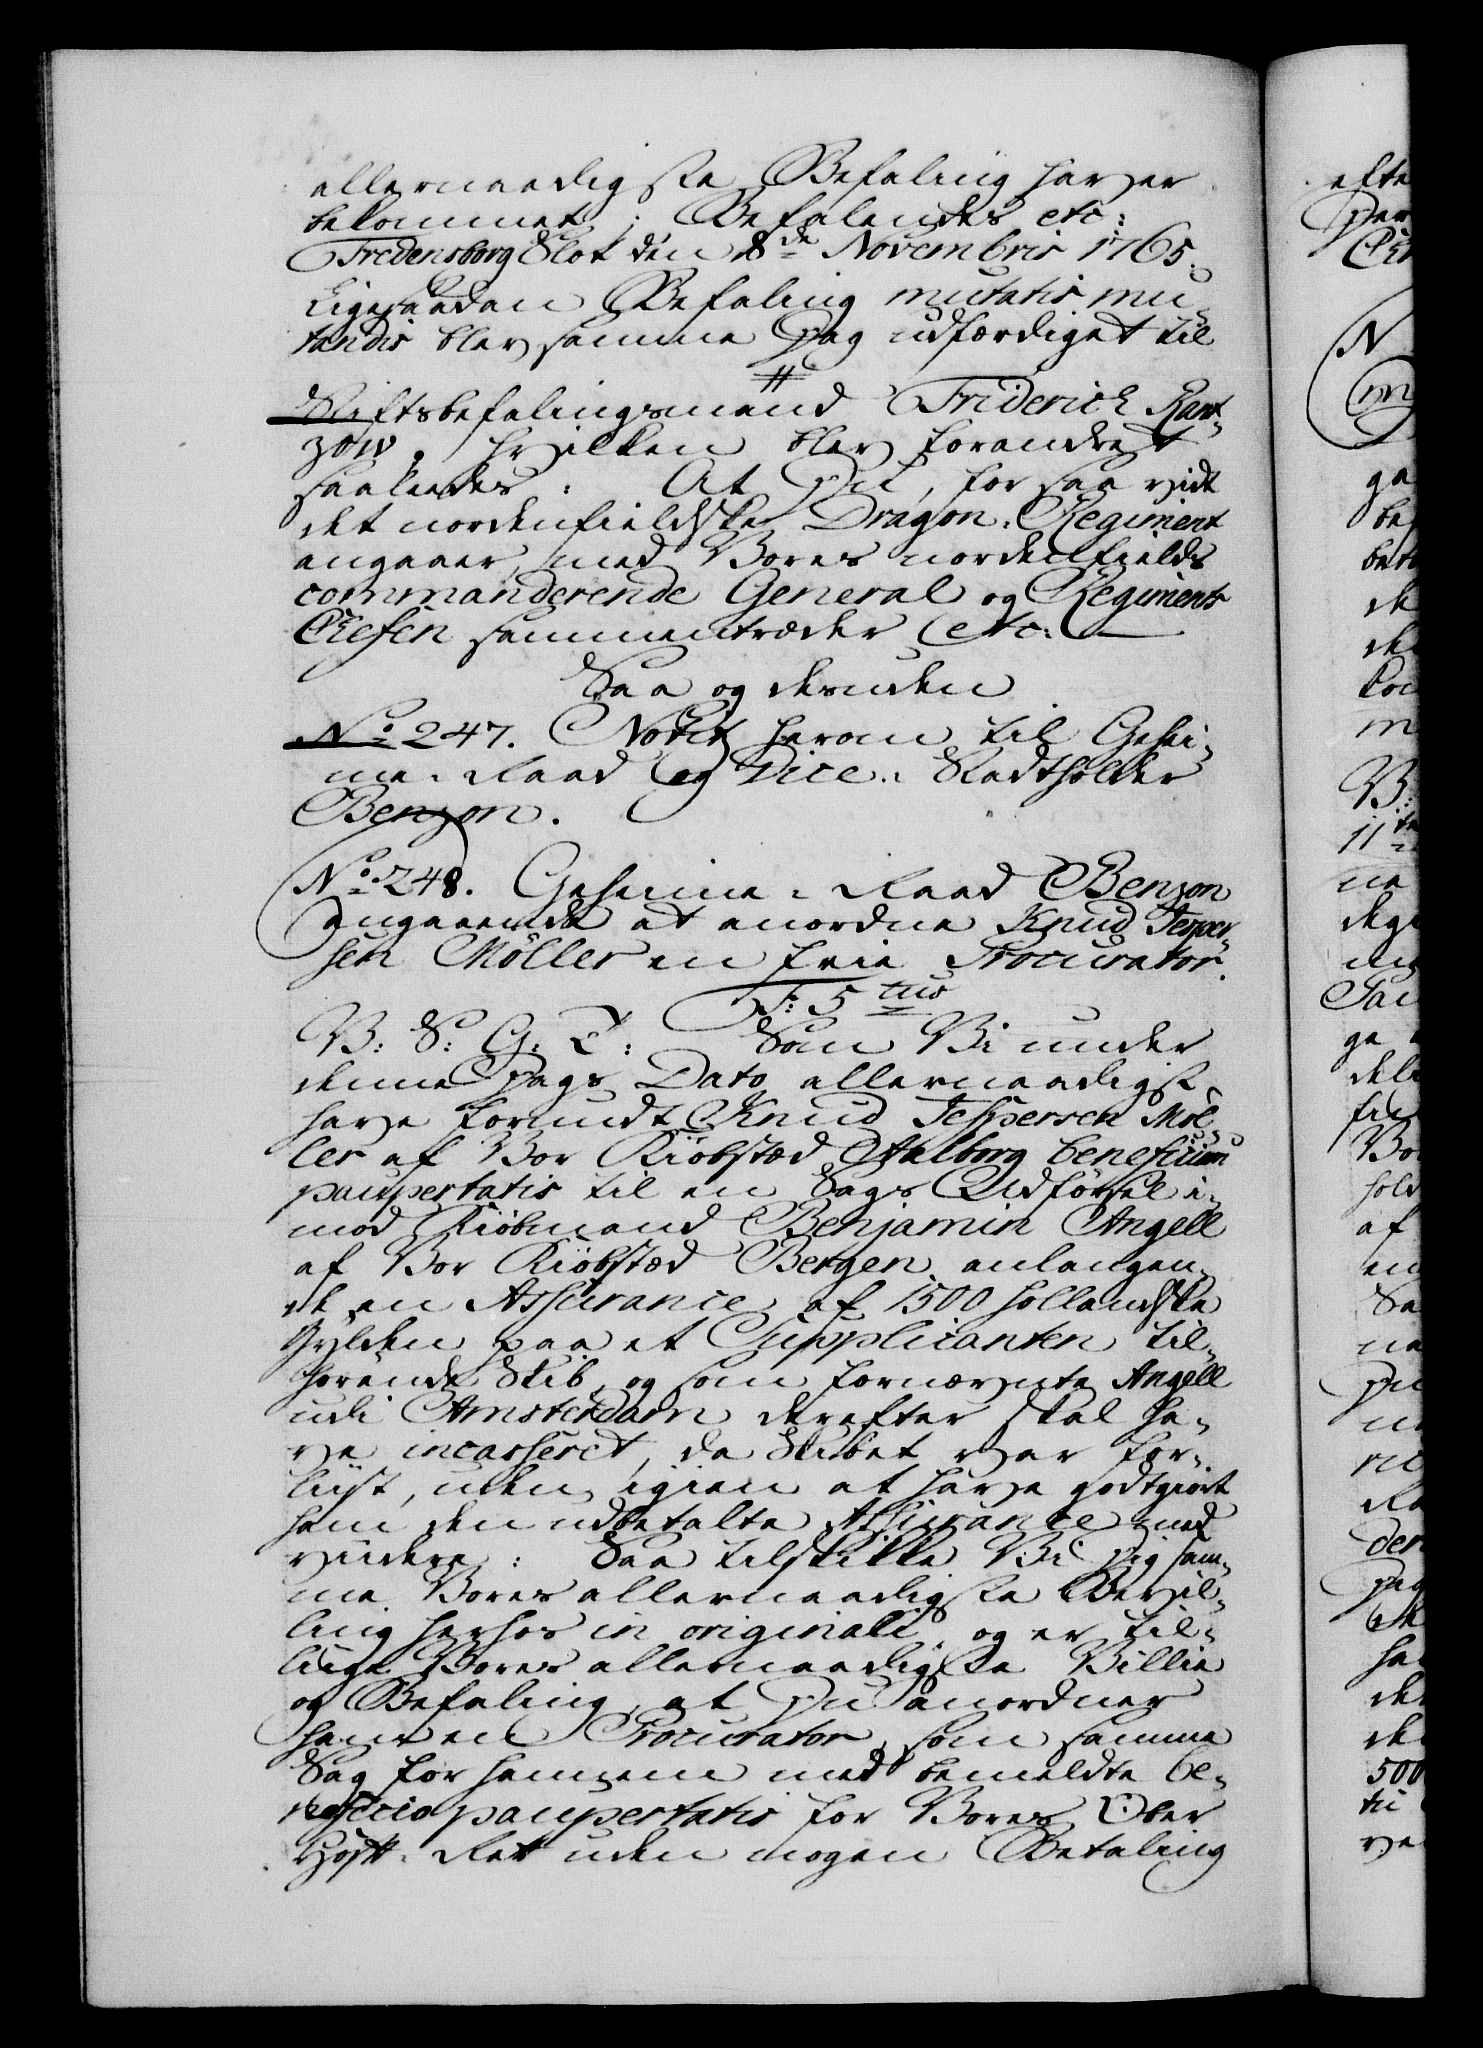 allernaadigste Befaling haver
bekommet; Befalendes etc:
Fredensborg Slot den 8de Novembris 1765.
Ligesaadan Befaling mutatis mu-
tandis blev samme Dag udfærdiget til
Stiftsbefalingsmand Friderich Rant-
zow, hvilken blev forandret
saaledes: At Du, for saa vidt
det nordenfieldske Dragon-Regiment
angaaer, med Vores nordenfields
commanderende General og Regiments
Chefen sammentræder etc:
Saa og desuden
No 247. Notits herom til Gehei-
me-Raad og Vice-Stadtholder
Benzon.
No 248. Geheime-Raad Benzon
angaaende at anordne Knud Jesper-
sen Möller en frie Procurator.
F: 5tus
V: S: G: T: Som Vi under
denne Dags Dato allernaadigst
have forundt Knud Jespersen Möl-
ler af Vor Kiöbstæd Aalborg beneficium
paupertatis til en Sags Udförsel i-
mod Kiöbmand Benjamin Angell
af Vor Kiöbstæd Bergen, anlangen-
de en Assurance af 1500 hollandske
Gylden paa et Supplicanten til-
hörende Skib, og som fornævnte Angell
udi Amsterdam derefter skal ha-
ve incasseret, da Skibet var for-
liist, uden igien at have godtgiort
ham den udbetalte Assurance med
videre: Saa tilskikke Vi Dig sam-
me Vores allernaadigste Bevil-
ling herhos in originali, og er til-
liige Vores allernaadigste Villie
og Befaling, at Du anordner
ham en Procurator, som samme
Sag for hannem med bemeldte be-
neficio paupertatis for Vores Ober
Hof-Ret uden nogen Betaling